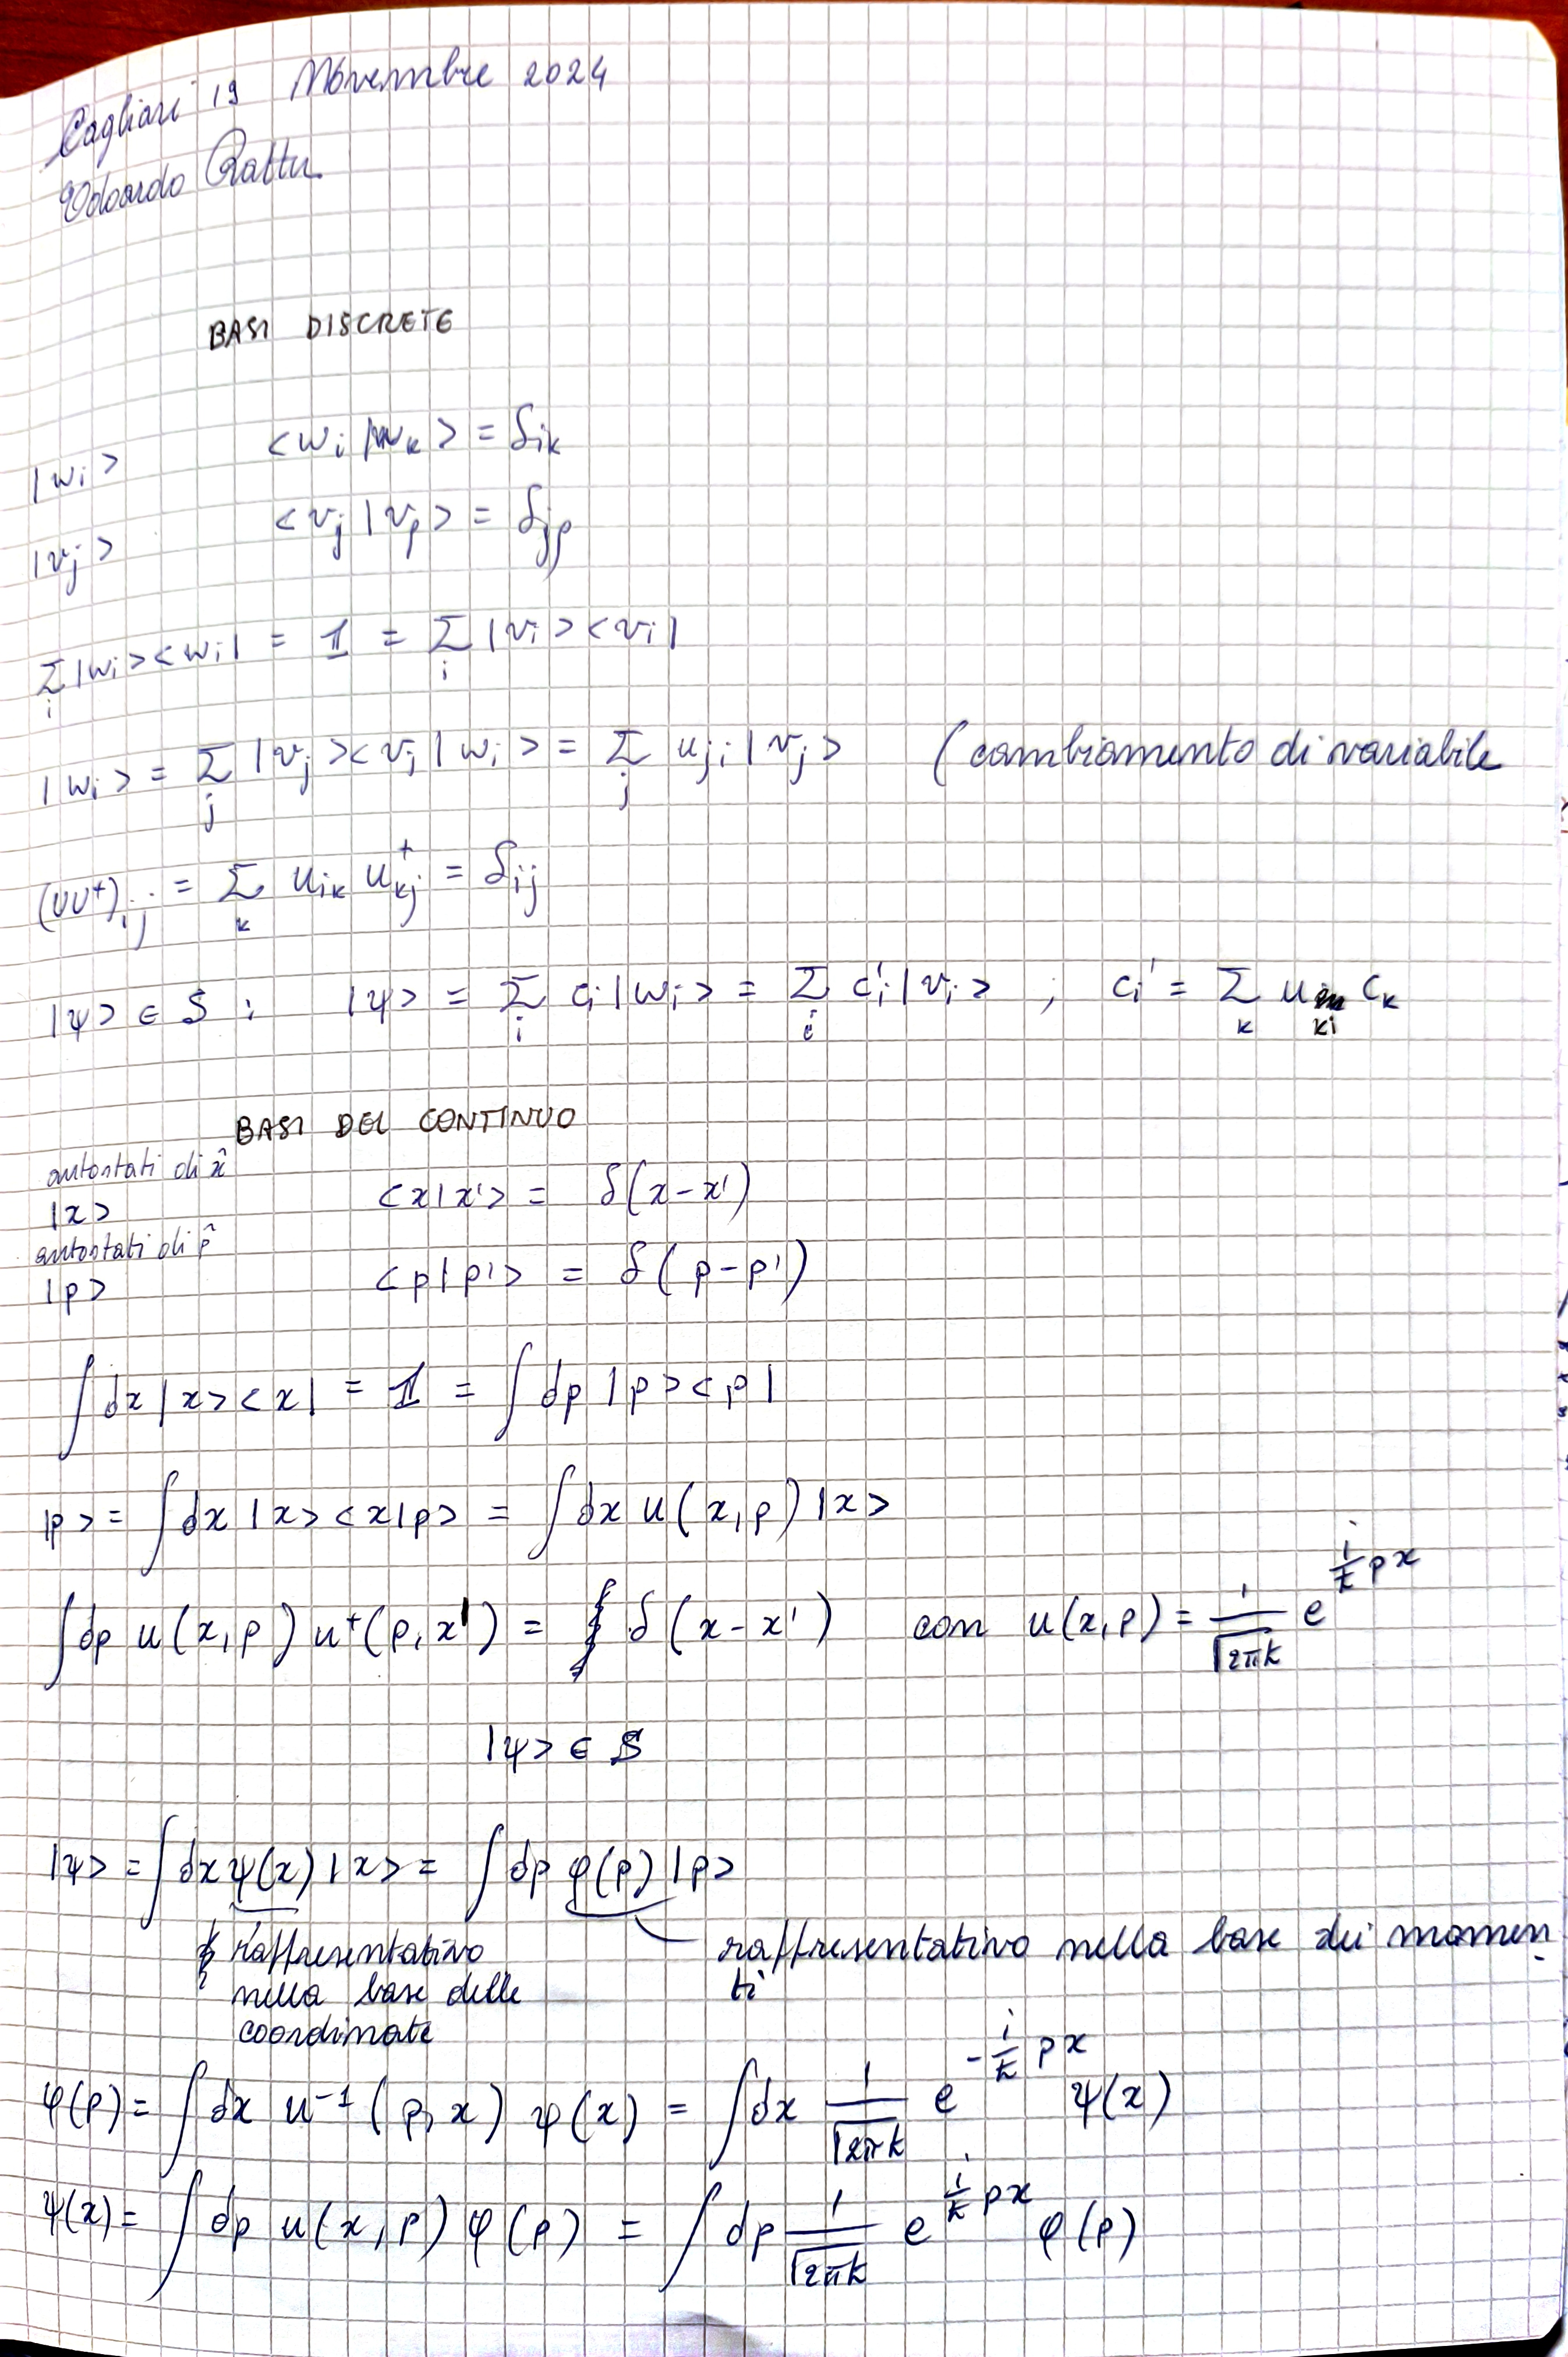 Cagliari 19 Novembre 2024
Edoardo Rattu
BASI DISCRETE
|wi> <wi|wk> = δik
|vj> <vj|vp> = δjp
Σi |wi><wi| = 𝟙 = Σi |vi><vi|
|wi> = Σj |vj><vj|wi> = Σj uji |vj> (cambiamento di variabile
(UU⁺)ij = Σk uik u⁺kj = δij
|ψ> ∈ S : |ψ> = Σi ci |wi> = Σi ci' |vi> ; ci' = Σk uki ck
BASI DEL CONTINUO
autostati di x̂
|x> <x|x'> = δ(x-x')
autostati di p̂
|p> <p|p'> = δ(p-p')
∫dx |x><x| = 𝟙 = ∫dp |p><p|
|p> = ∫dx |x><x|p> = ∫dx u(x,p) |x>
∫dp u(x,p) u⁺(p,x') = δ(x-x') con u(x,p) = 1/√(2πħ) e^(i/ħ px)
|ψ> ∈ S
|ψ> = ∫dx ψ(x) |x> = ∫dp φ(p) |p>
rappresentativo
nella base delle
coordinate
rappresentativo nella base dei momen
ti
φ(p) = ∫dx u⁻¹(p,x) ψ(x) = ∫dx 1/√(2πħ) e^(-i/ħ px) ψ(x)
ψ(x) = ∫dp u(x,p) φ(p) = ∫dp 1/√(2πħ) e^(i/ħ px) φ(p)